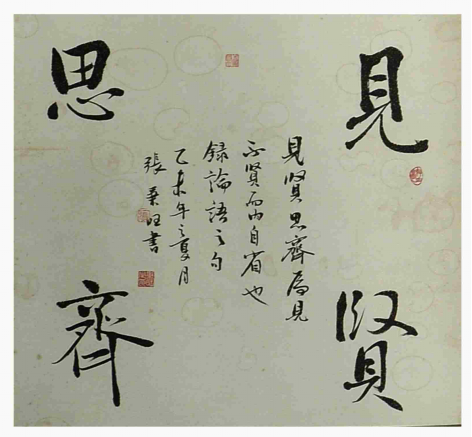 見賢
思齊
見賢思齊焉見
不賢而内自省也
録論語之句
乙未年之夏月
張秉旺書